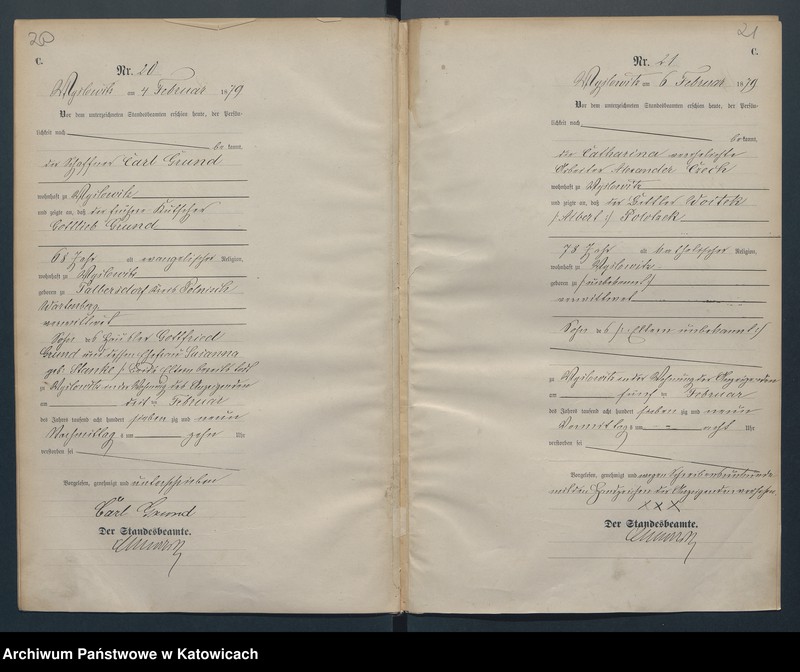 20
C.
Nr. 20
Myslowitz am 4 Februar 1879
Vor dem unterzeichneten Standesbeamten erschien heute, der Persön-
lichkeit nach
be kannt,
der Schaffner Carl Grund
wohnhaft zu Myslowitz
und zeigte an, daß der frühere Kutscher
Gottlieb Grund
68 Jahr alt evangelischer Religion,
wohnhaft zu Myslowitz
geboren zu Kreis Polnisch
Wartenberg
verwittwet
Sohn des Häusler Gottfried
Grund und dessen Ehefrau Susanna
geb. beide Eltern bereits todt
zu Myslowitz in der Wohnung des Anzeigenden
am Februar
des Jahres tausend acht hundert sieben zig und neun
Nachmittag s um zehn Uhr
verstorben sei
Vorgelesen, genehmigt und unterschrieben
Carl Grund
Der Standesbeamte.
21
C.
Nr. 21
Myslowitz am 6 Februar 1879
Vor dem unterzeichneten Standesbeamten erschien heute, der Persön-
lichkeit nach
be kannt,
die Catharina verehelichte
Arbeiter Alexander
wohnhaft zu Myslowitz
und zeigte an, daß der Bettler Woitek
/: Albert :/ Polaczek
78 Jahr alt katholischer Religion,
wohnhaft zu Myslowitz
geboren zu /: unbekannt :/
verwittwet
Sohn des /: Eltern unbekannt :/
zu Myslowitz in der Wohnung der Anzeigenden
am fünf ten Februar
des Jahres tausend acht hundert sieben zig und neun
Vormittag s um acht Uhr
verstorben sei
Vorgelesen, genehmigt und wegen Schreibensunkunde
mit den Handzeichen der Anzeigenden versehen
XXX
Der Standesbeamte.
Archiwum Państwowe w Katowicach